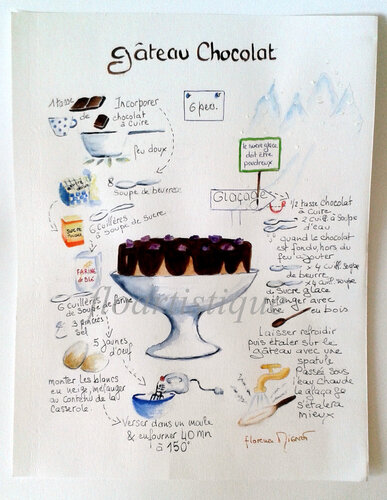 gâteau Chocolat
1 tasse
de
Incorporer
chocolat
à Cuire
6 pers.
feu doux
le sucre glace
doit être
poudreux
8
Soupe de beurre.
Glaçage
6 Cuillères
à Soupe de Sucre.
SUCRE
POUDRE
1/2 tasse Chocolat
à Cuire
2 Cuill. à Soupe
d'eau
quand le chocolat
est fondu, hors du
feu ajouter
x 4 cuill. soupe
de beurre.
x 4 cuill. soupe
de Sucre glace
mélanger avec
Cuire en bois
FARINE
DE BLÉ
6 Cuillères
de Soupe de farine
3 pincées
Sel
floartistique
5 jaunes
d'oeuf
Laisser refroidir
puis étaler sur le
gâteau avec une
spatule
Passée sous
l'eau Chaude
le glaçage
s'étalera
mieux
monter les blancs
en neige, mélanger
au Contenu de la
Casserole.
Verser dans un moule
& enfourner 40 mn
à 150°